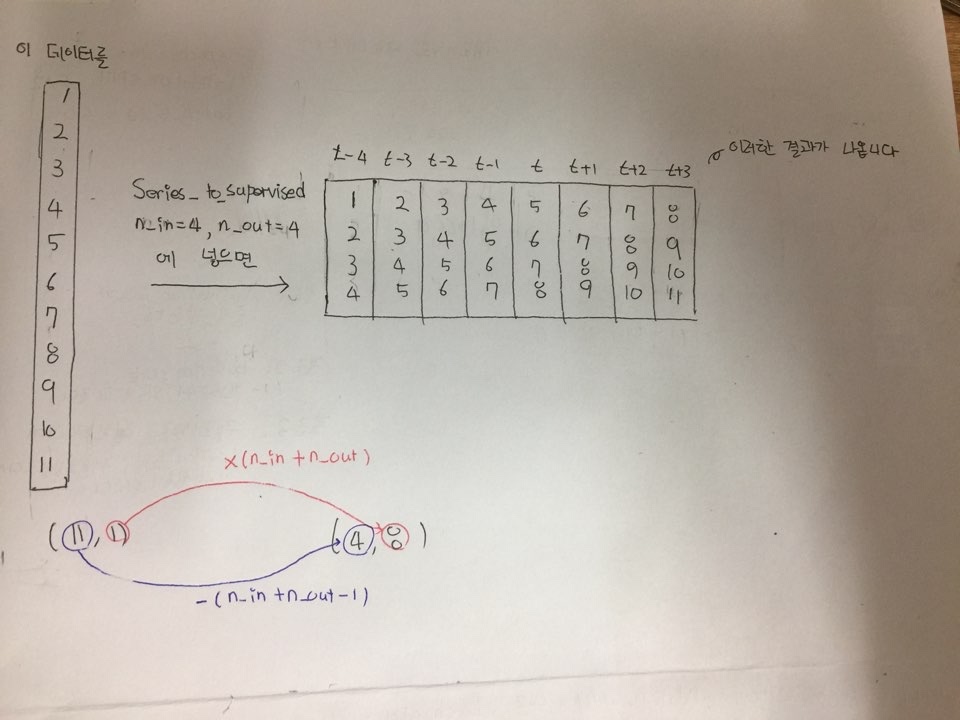 이 데이터를
1
2
3
4
5
6
7
8
9
10
11
Series_to_supervised
n_in=4, n_out=4
에 넣으면
t-4 t-3 t-2 t-1 t t+1 t+2 t+3
1 2 3 4 5 6 7 8
2 3 4 5 6 7 8 9
3 4 5 6 7 8 9 10
4 5 6 7 8 9 10 11
이러한 결과가 나옵니다
×(n_in +n_out)
(11, 1) (4, 8)
-(n_in +n_out-1)